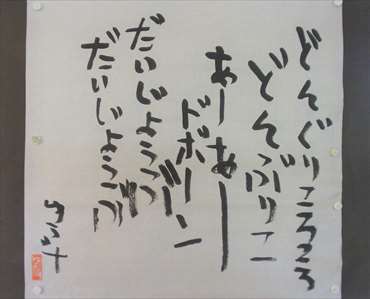 どんぐりころころ
どんぶりこー
あーあー
ドボーン
だいじょうぶ
だいじょうぶ